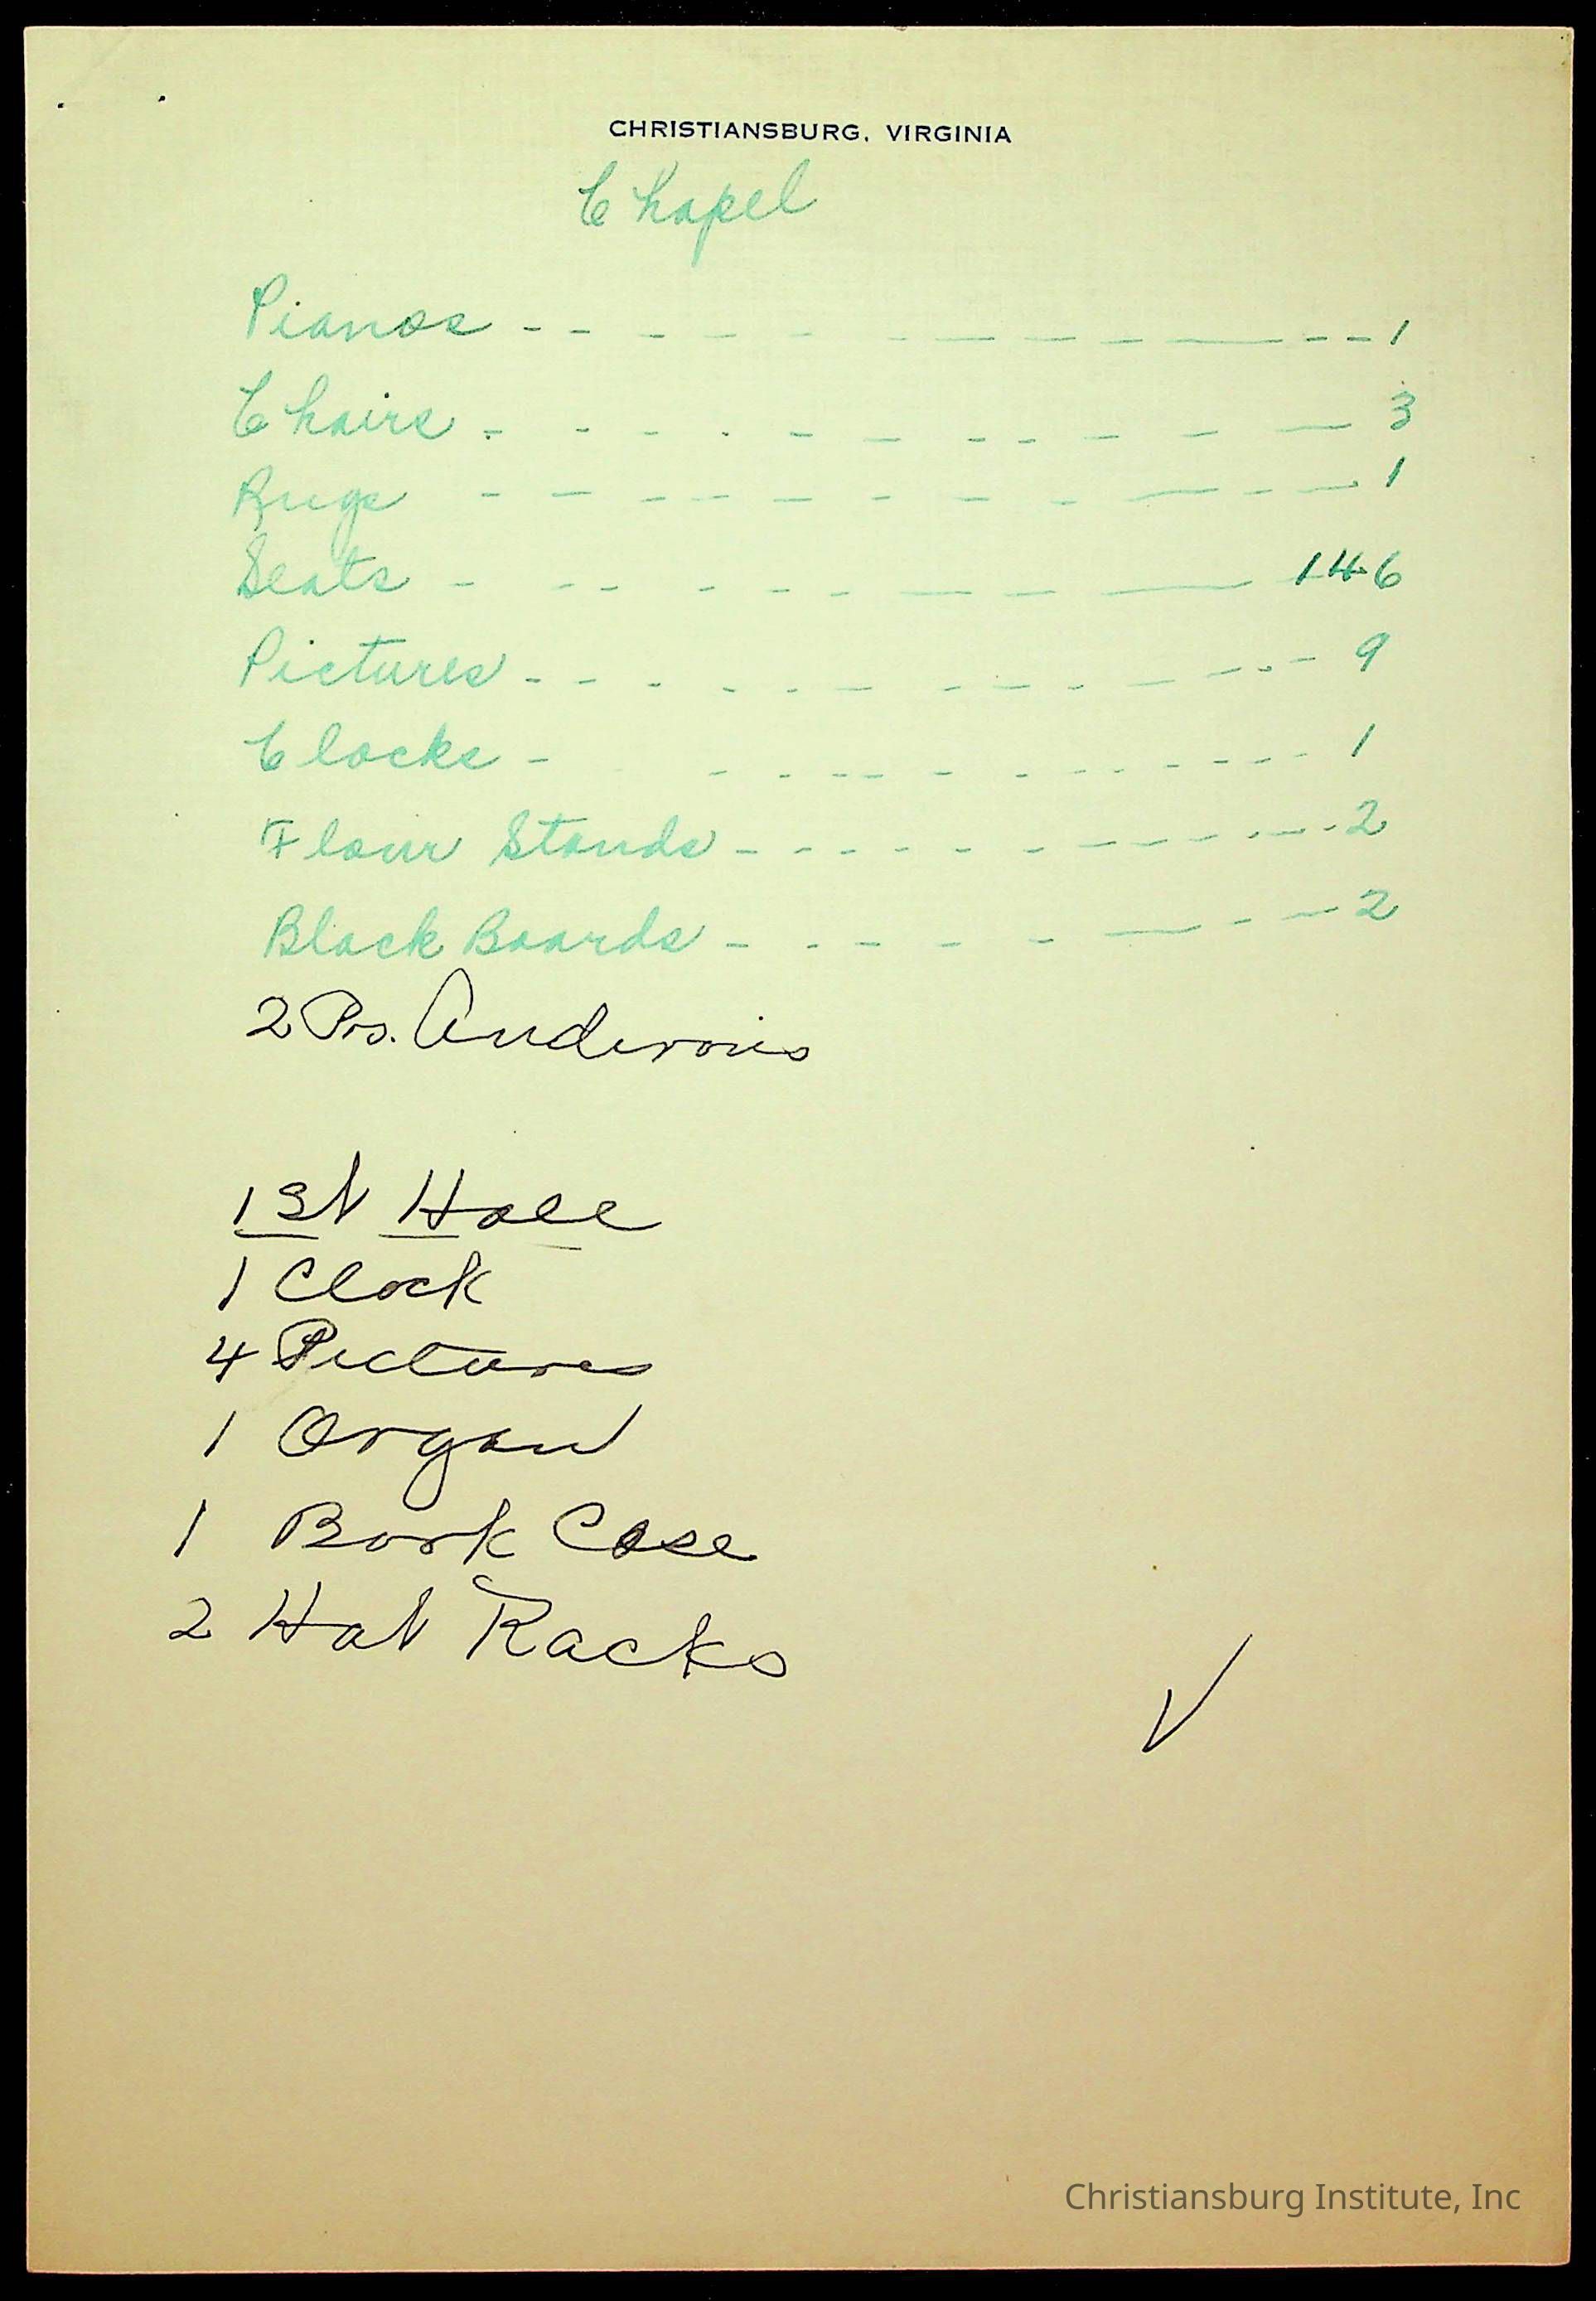 CHRISTIANSBURG, VIRGINIA
Chapel
Pianos - - - - - - - - - - - - - 1
Chairs - - - - - - - - - - - 3
Rugs - - - - - - - - - - - - 1
Seats - - - - - - - - - 146
Pictures - - - - - - - - - - - - - 9
Clocks - - - - - - - - - - - - - 1
Flour Stands - - - - - - - - - - - - 2
Black Boards - - - - - - - - 2
2 Prs. Andirons
1st Hall
1 Clock
4 Pictures
1 Organ
1 Book Case
2 Hat Racks
✓
Christiansburg Institute, Inc